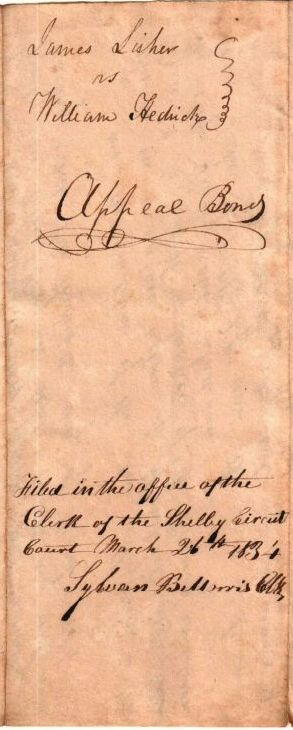 James Lisher
vs
William Hedrick
Appeal Bond
Filed in the office of the
Clerk of the Shelby Circuit
Court March 26th 1834
Sylvan B. Morris Clk